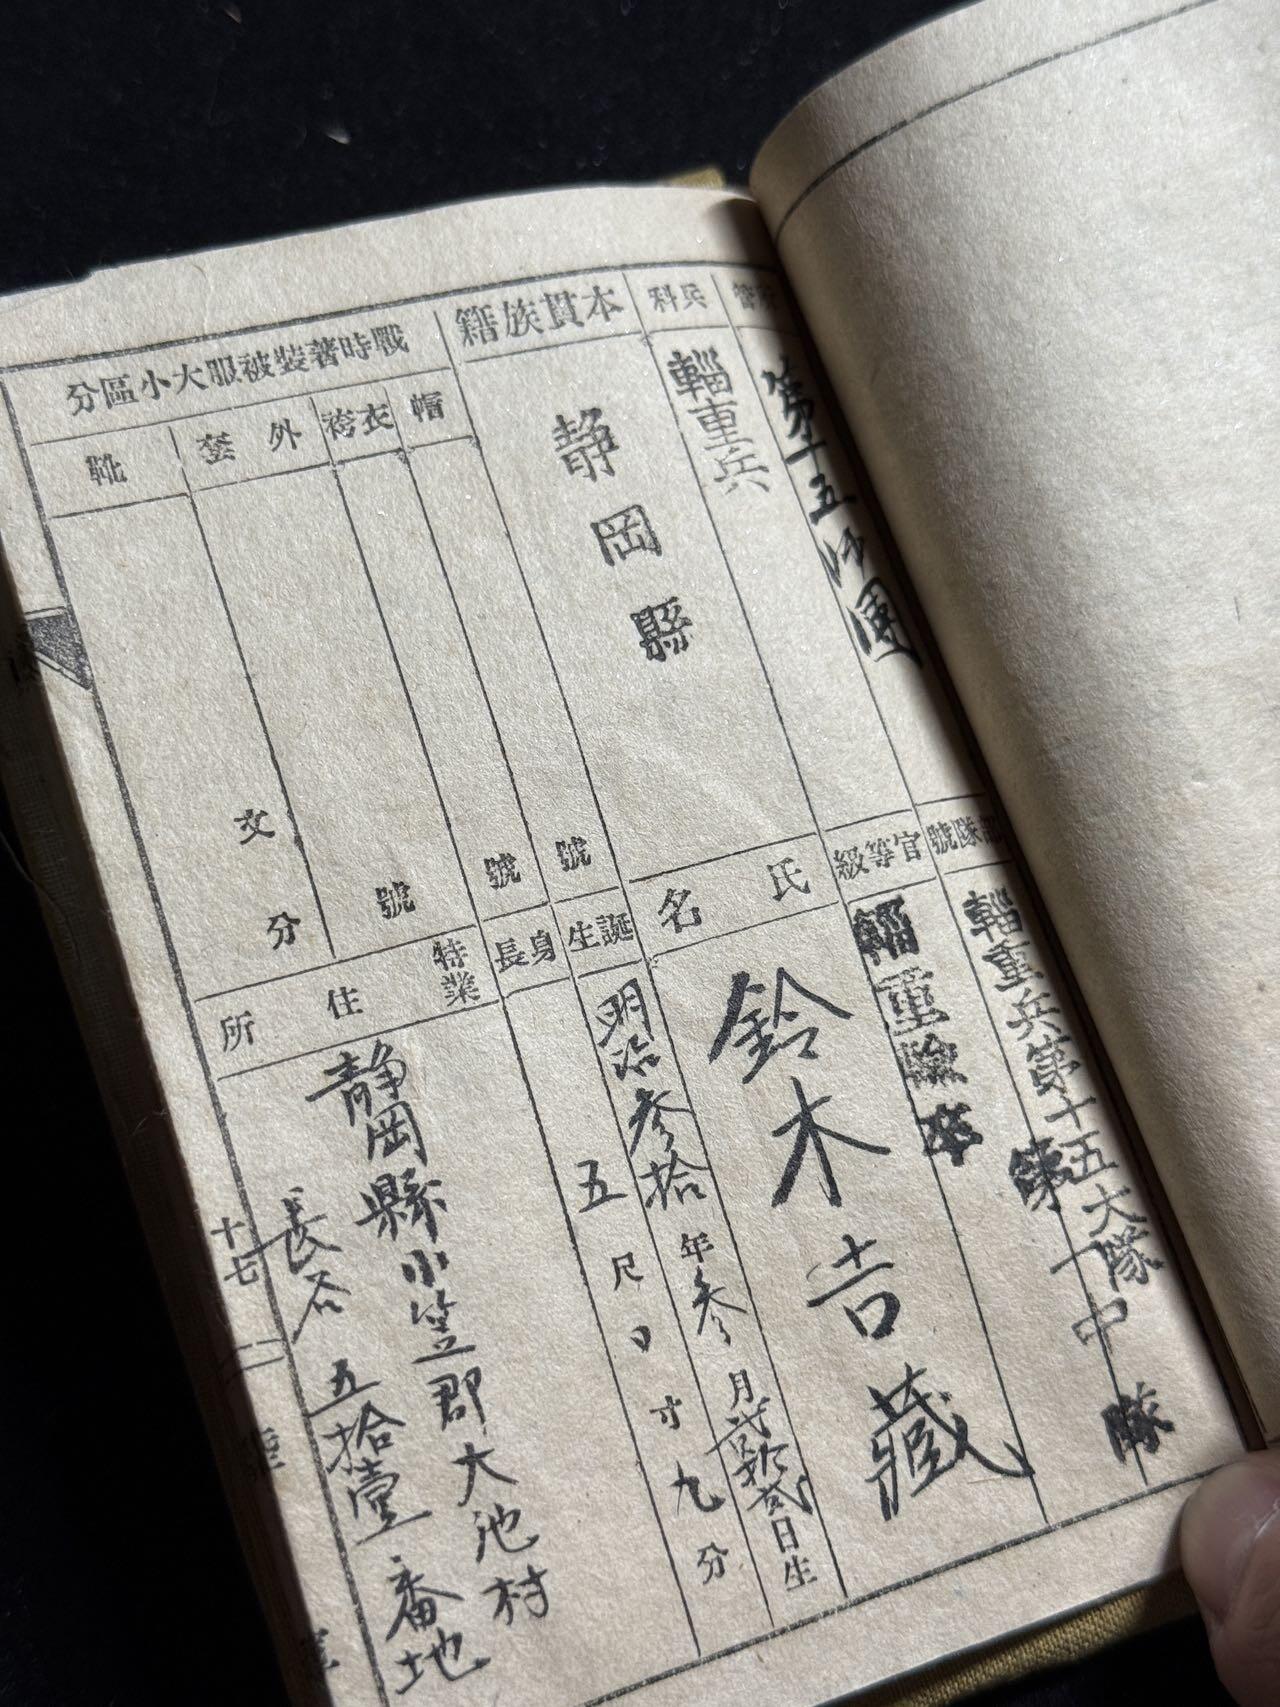 所管
第十五師團
部隊號
輜重兵第十五大隊
第一中隊
兵科
輜重兵
官等級
輜重輸卒
本貫族籍
静岡縣
氏名
鈴木吉藏
戰時著裝被服大小區分
帽
號
衣袴
號
外套
號
靴
文
分
誕生
明治参拾年参月貳拾貳日生
身長
五尺〇寸九分
特業
住所
靜岡縣小笠郡大池村
長谷五拾壹番地
十七